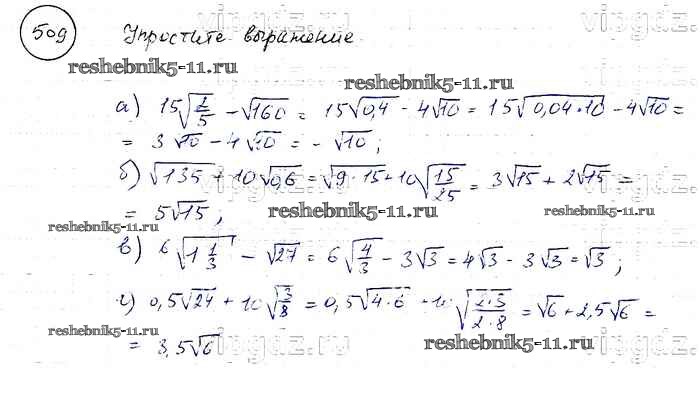 509 Упростите выражение
reshebnik5-11.ru
reshebnik5-11.ru
а) 15√(2/5) - √160 = 15√0,4 - 4√10 = 15√(0,04·10) - 4√10 =
= 3√10 - 4√10 = -√10;
б) √135 + 10√0,6 = √(9·15) + 10√(15/25) = 3√15 + 2√15 =
= 5√15;
reshebnik5-11.ru
reshebnik5-11.ru
reshebnik5-11.ru
в) 6√(1 1/3) - √27 = 6√(4/3) - 3√3 = 4√3 - 3√3 = √3;
г) 0,5√24 + 10√(3/8) = 0,5√(4·6) + 10√((2·3)/(2·8)) = √6 + 2,5√6 =
= 3,5√6
reshebnik5-11.ru
reshebnik5-11.ru
vipgdz.ru